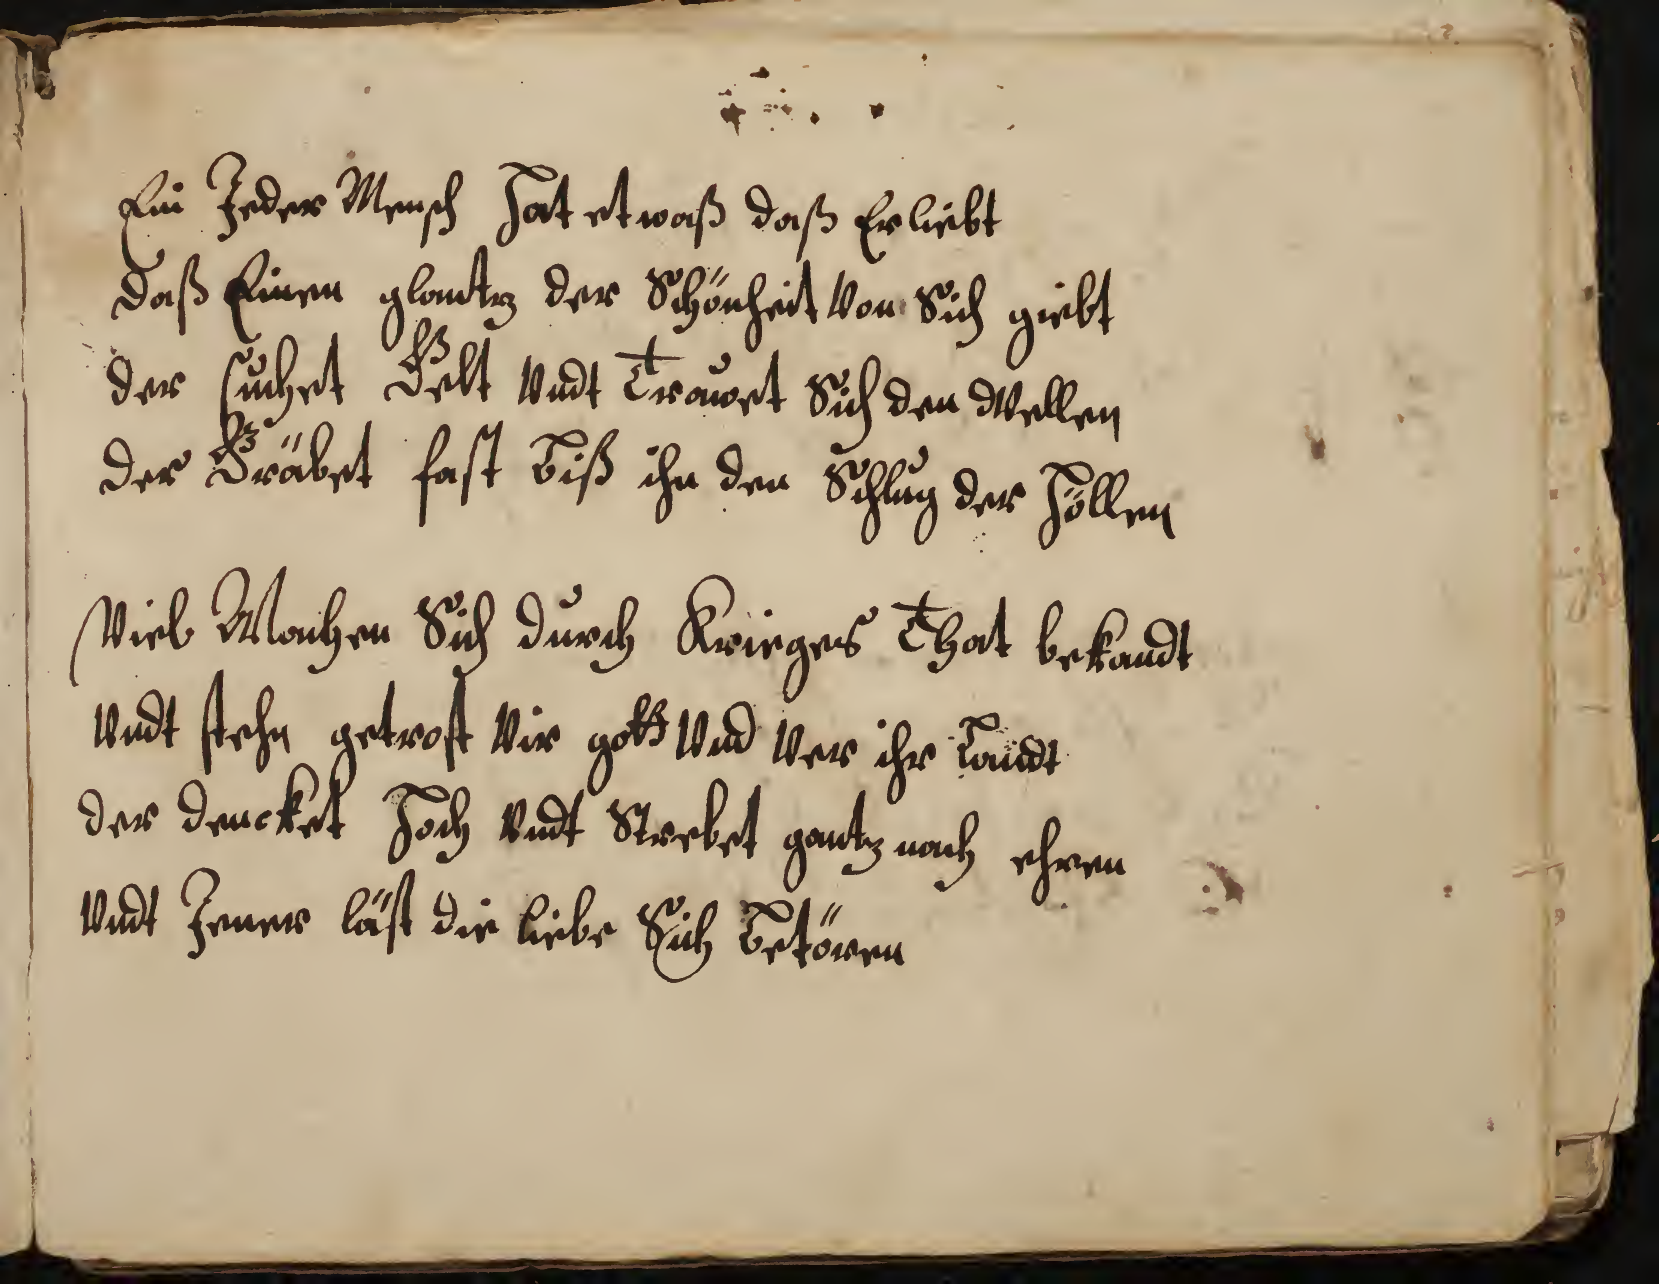 Ein Jeder Mensch Hat etwaß daß Er liebt
daß Einen glantz der Schönheit Von Sich giebt
der suchet Gelt Vndt Trauwet Sich den Wellen
der Gräbet fast biß ihn den Schlug der Höllen
Viel Machen Sich durch Krieges That bekandt
Vndt stehn getrost Vir gott Vnd Ver ihr Landt
der dencket Hoch Vndt Strebet gantz nach ehren
Vndt Jener läst die liebe Sich Betören